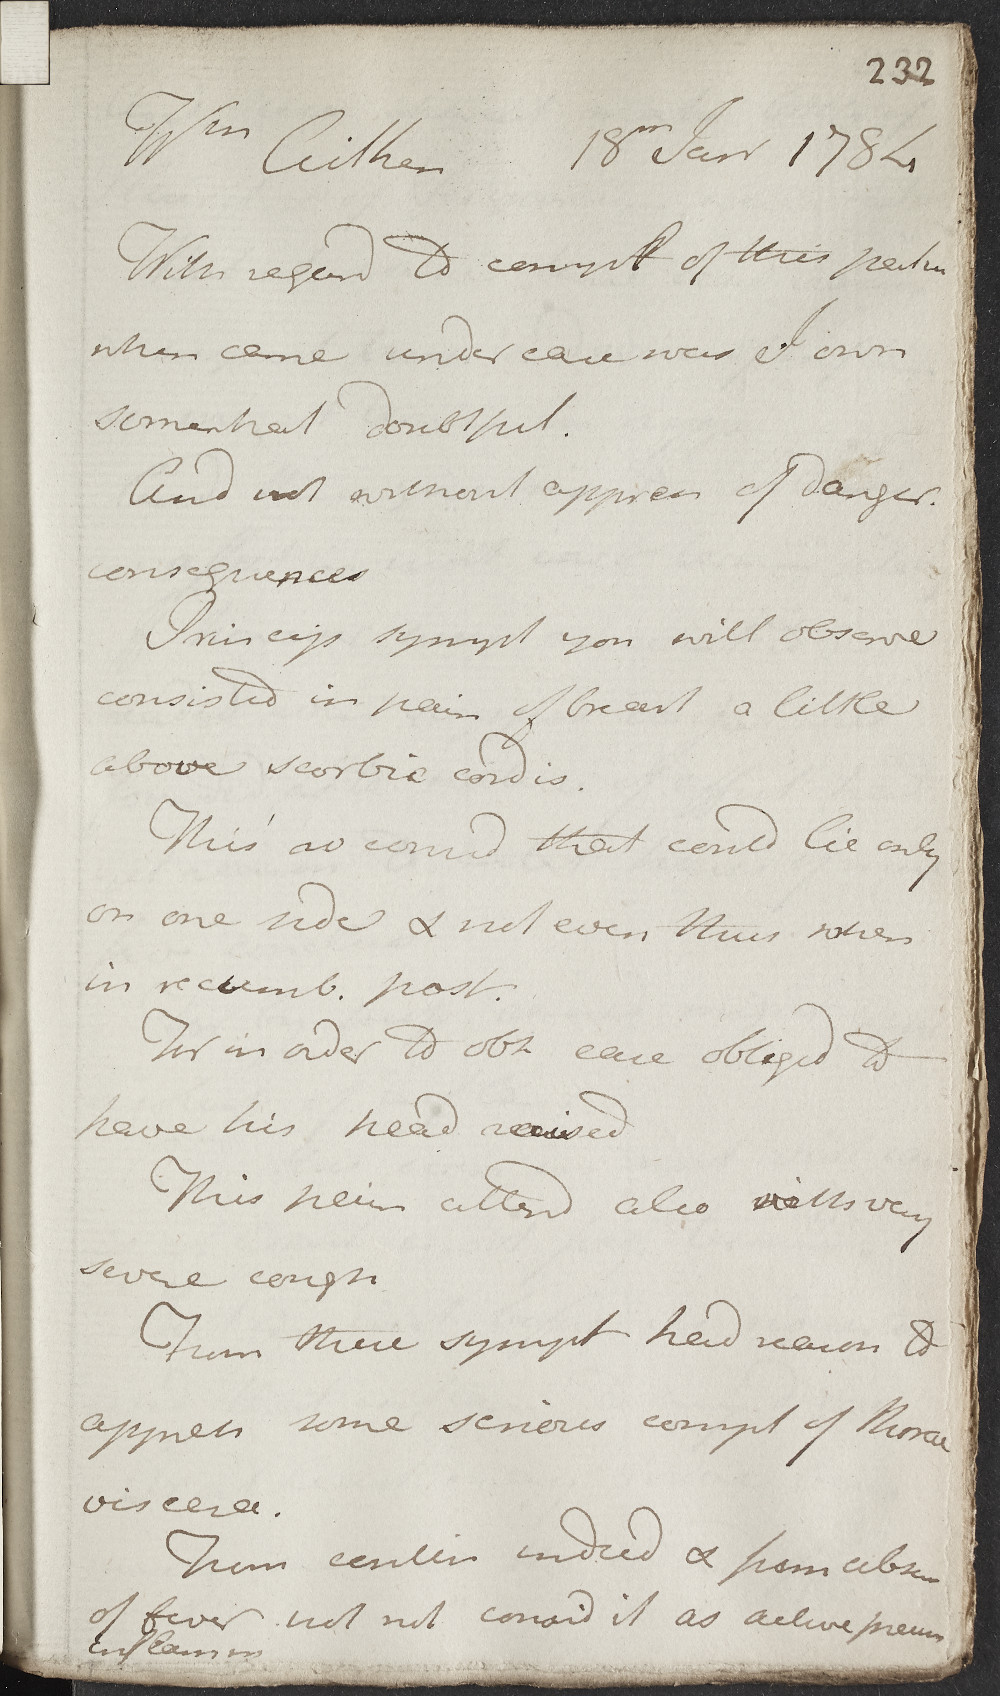 232
Wm Aitken 18th Janr 1784
With regard to compt of this patien
when came under care was I own
somewhat doubtful.
And not without appren of danger.
consequences
Princip sympt you will observe
consisted in pain of breast a little
above scorbic cordis.
This so consid that could lie only
on one side & not even thus when
in recumb. post.
For in order to obt ease obliged to
have his head raised
This pain attend also with very
severe cough
From these sympt had reason to
appreh some serious compt of Thorac
viscera.
From contin indeed & from absen
of fever not consid it as active pneum
inflamm